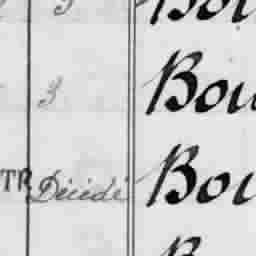 3 Bou
3 Bou
TR Décédé Bou
B